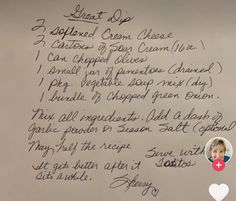 Great Dip
2 softened Cream Cheese
2 Cartons of Sour Cream (16oz)
1 Can Chopped Olives
1 small jar of pimentoes (drained)
1 pkg. vegetable soup mix (dry)
1 bundle of chopped green onion.
Mix all ingredients. Add a dash of
garlic powder or Season Salt (optional)
May half the recipe
Serve with
Tostitos
It gets better after it
sits awhile.
Sherry